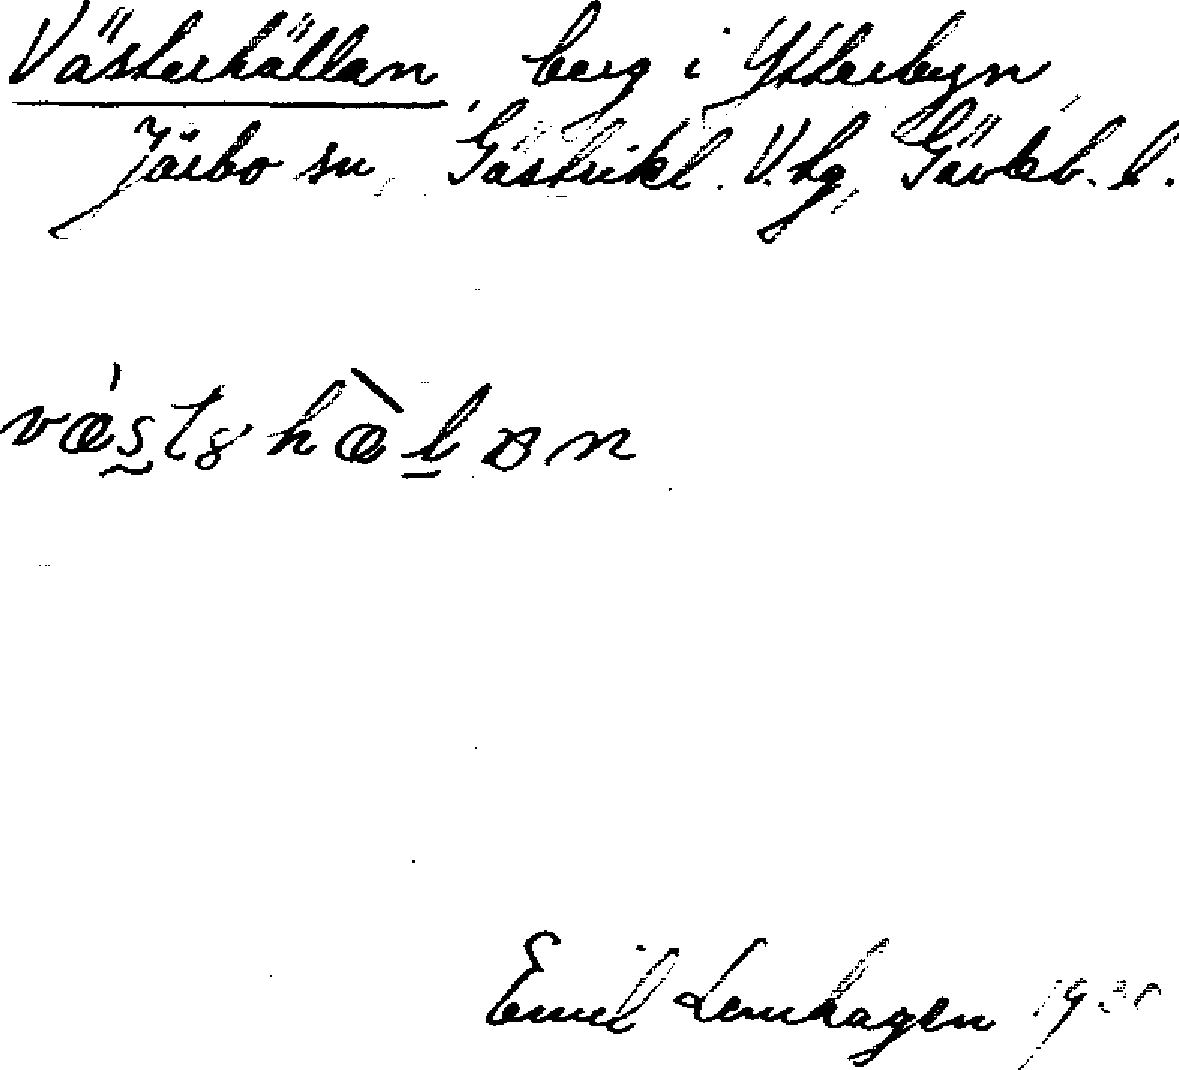 Västerhällan, berg i Ytterbyn,
Järbo sn, Gästrikl. V. hg, Gävleb. l.
væ̀stȣhæ̀lan
Emil Lenhagen 1930